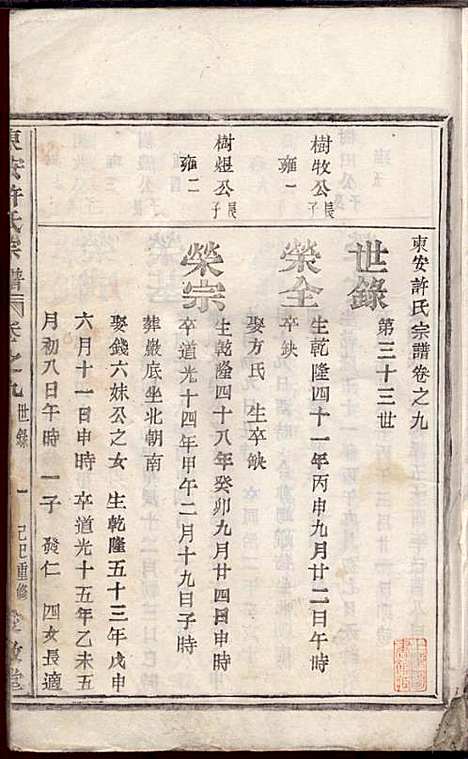 東安許氏宗譜卷之九
世錄 第三十三世
樹牧公長子
雍一
榮全 生乾隆四十一年丙申九月廿二日午時
卒缺
娶方氏 生卒缺
樹煜公長子
雍二
榮宗 生乾隆四十八年癸卯九月廿四日申時
卒道光十四年甲午二月十九日子時
葬嚴底坐北朝南
娶錢六妹公之女 生乾隆五十三年戊申
六月十一日申時 卒道光十五年乙未五
月初八日午時 一子 發仁 四女長適
東安許氏宗譜 卷之九 世錄 一 己巳重修